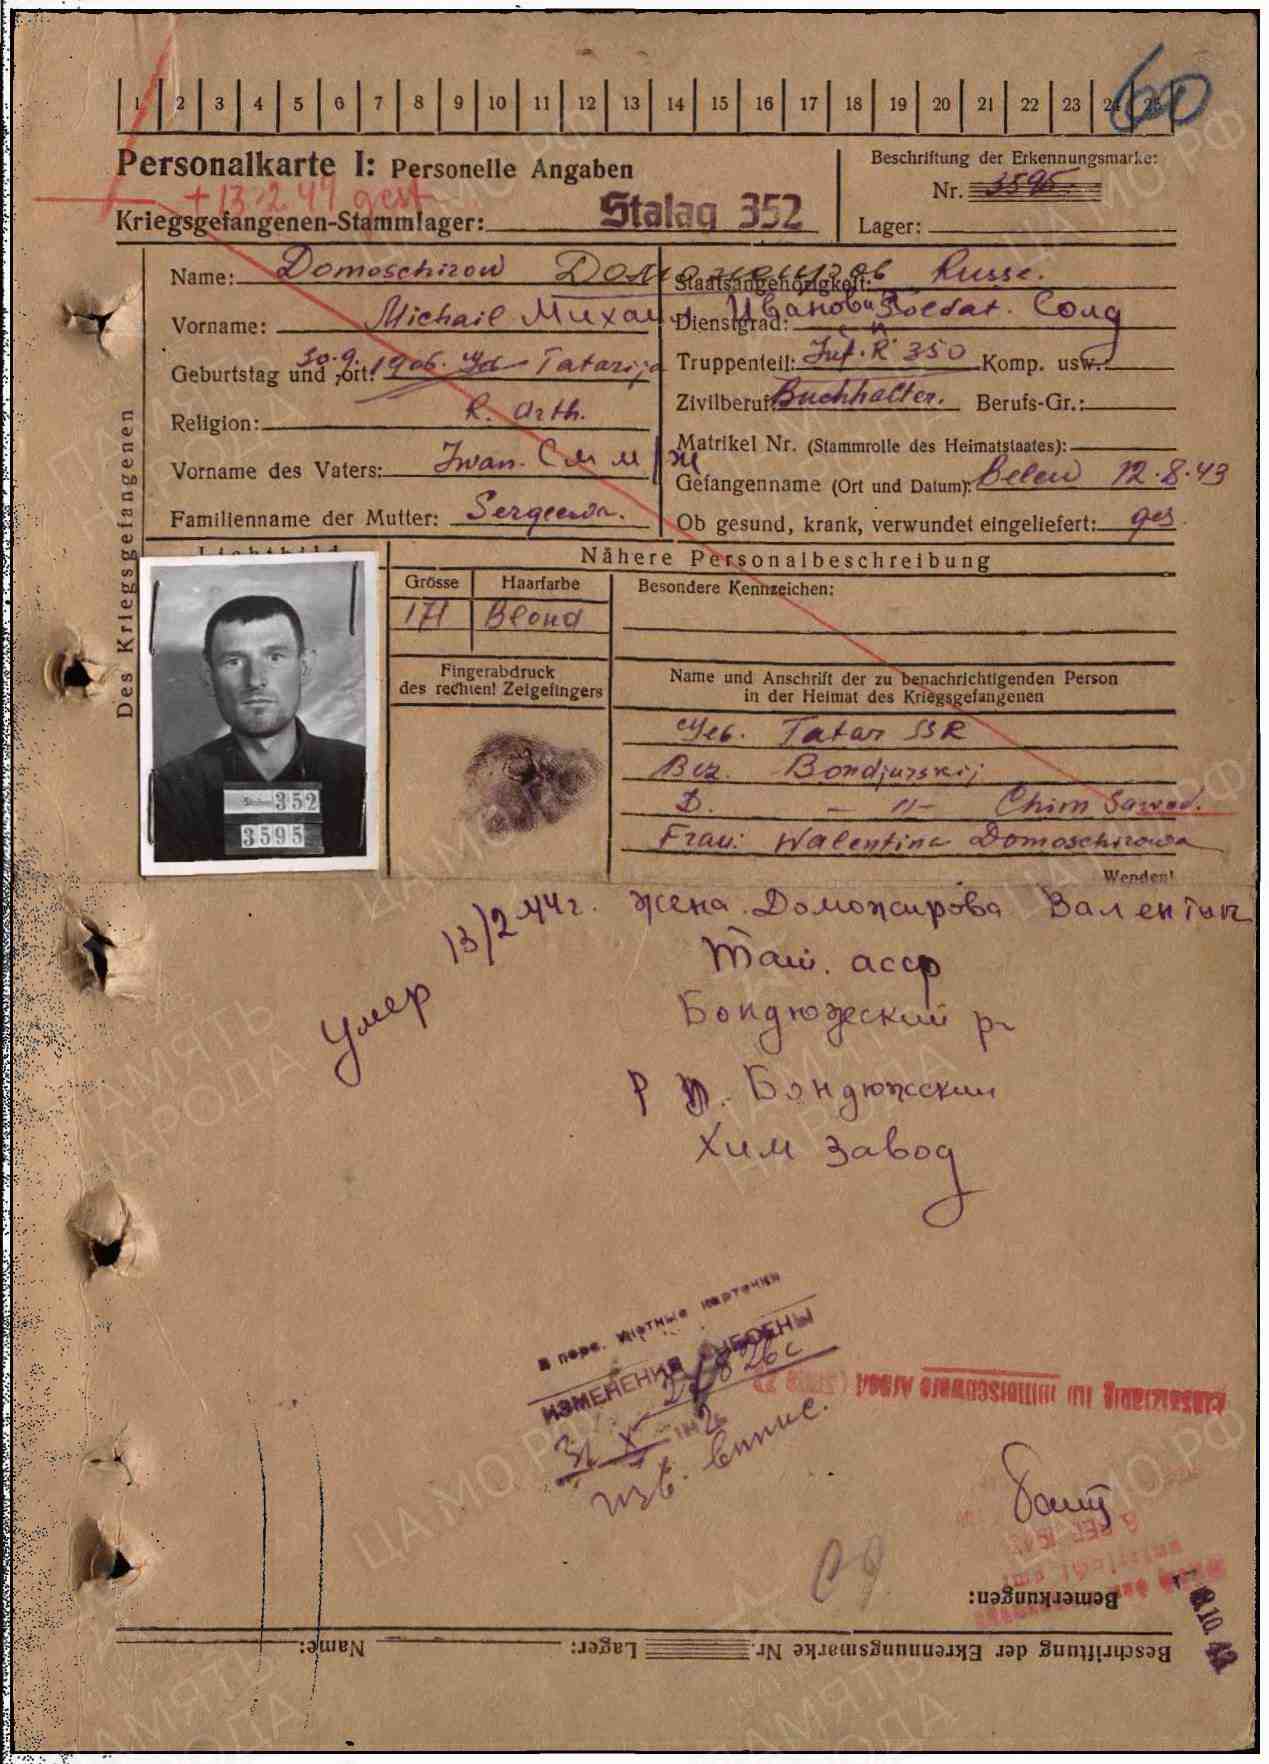 1 2 3 4 5 6 7 8 9 10 11 12 13 14 15 16 17 18 19 20 21 22 23 24 25
60
Personalkarte I: Personelle Angaben
Beschriftung der Erkennungsmarke:
Nr. 3595.
+ 13.2.44 gest
Kriegsgefangenen-Stammlager: Stalag 352
Lager:
Des Kriegsgefangenen
Name: Domoschirow Доможиров
Vorname: Michail Михаил Иванови
Geburtstag und ,ort: 30.9. 1906. Tatarija
Religion: R. Orth.
Vorname des Vaters: Iwan.
Familienname der Mutter: Sergeewa.
Staatsangehörigkeit: Russe.
Dienstgrad: Soldat. Солд
Truppenteil: Inf. R 350 Komp. usw.:
Zivilberuf: Buchhalter. Berufs-Gr.:
Matrikel Nr. (Stammrolle des Heimatstaates):
Gefangenname (Ort und Datum): Belew 12.8.43
Ob gesund, krank, verwundet eingeliefert: ges
Lichtbild
Nähere Personalbeschreibung
Grösse Haarfarbe
171 Blond
Besondere Kennzeichen:
Fingerabdruck
des rechten! Zeigefingers
Name und Anschrift der zu benachrichtigenden Person
in der Heimat des Kriegsgefangenen
Geb. Tatar SSR
Bez. Bondjurskij
D. — 11 — Chim Sawod.
Frau: Walentina Domoschirowa
Wenden!
352
3595
Умер 13/2 44 г.
жена Доможирова Валентин
Тат. асср
Бондюжский р-
р п. Бондюжский
Хим завод
В перс. учетные карточки
ИЗМЕНЕНИЯ ВНЕСЕНЫ
изв.
Bemerkungen:
Beschriftung der Ekrennungsmarke Nr. Lager: Name: